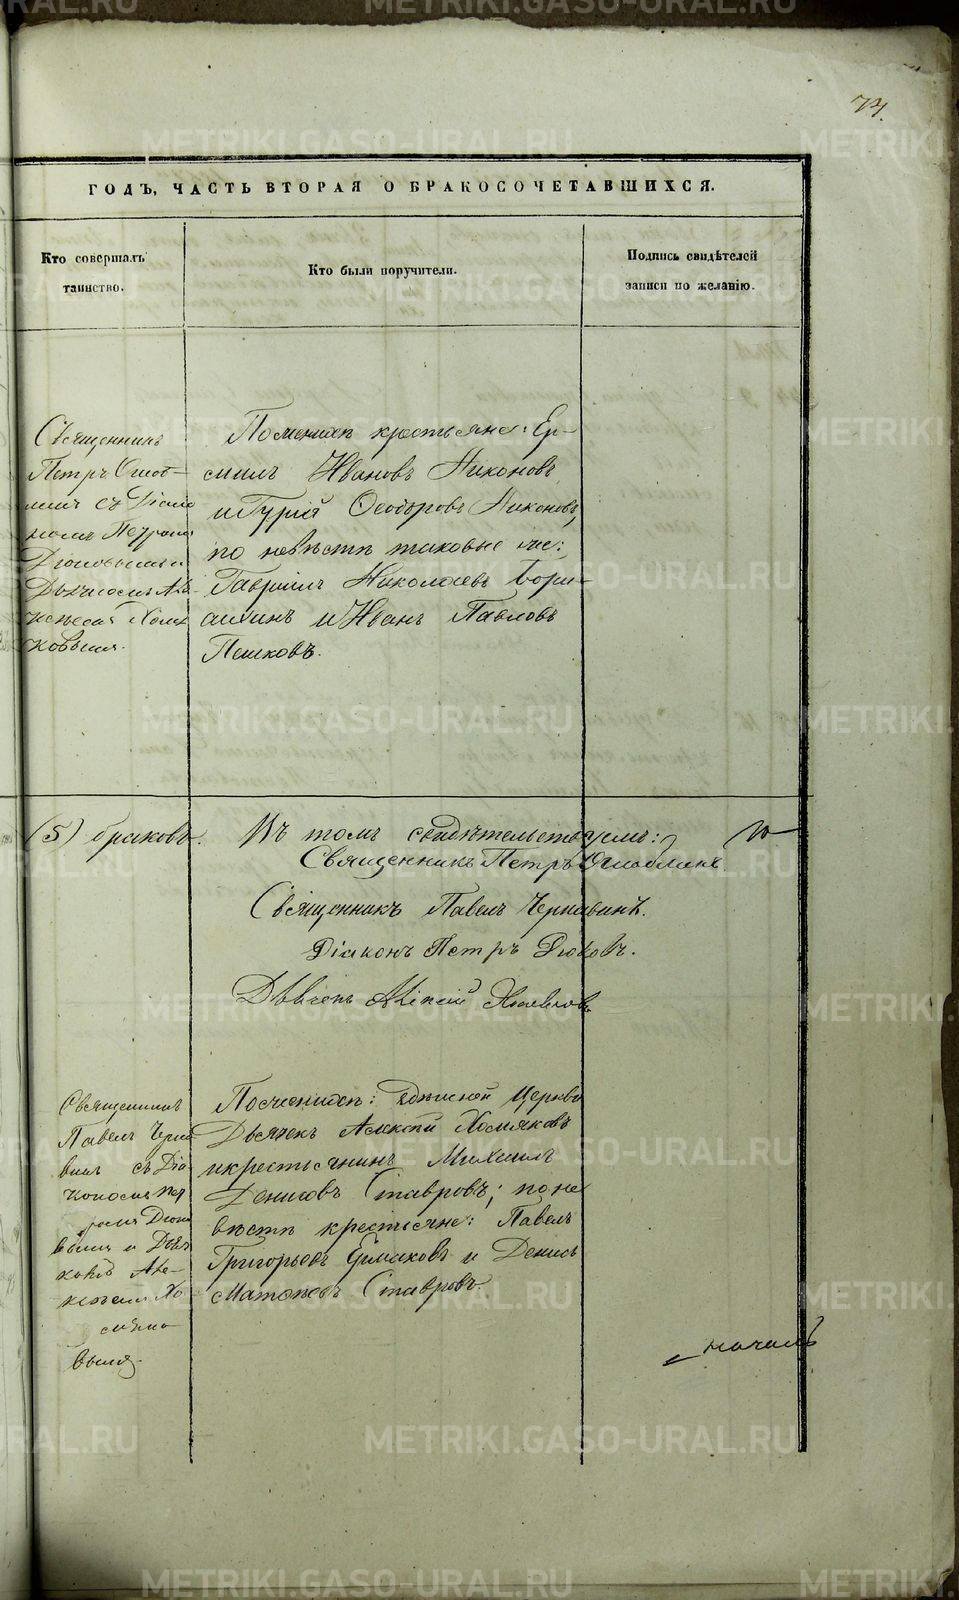 74.
ГОДЪ, ЧАСТЬ ВТОРАЯ О БРАКОСОЧЕТАВШИХСЯ.
Кто совершалъ
таинство.
Кто были поручители.
Подпись свидѣтелей
записи по желанію.
Священникъ
Петръ
съ Діако
номъ Петромъ
Дьячкомъ Але
ксѣемъ Хомя
ковымъ.
По женихѣ крестьяне: Ер-
милъ Ивановъ Никоновъ
и Гурій Ѳеодоровъ Никоновъ,
по невѣстѣ таковые же:
Гавріилъ Николаевъ
и Иванъ Павловъ
Пешковъ.
(5) браковъ.
Въ томъ свидѣтельствуемъ:
Священникъ Петръ
Священникъ Павелъ Чернавинъ.
Діаконъ Петръ
Дьячекъ Алексій Хомяковъ
Священникъ
Павелъ Черна
винъ съ Діа
кономъ Пет
ромъ
и Дьяч
комъ Але-
ксѣемъ Хо
мяко
вымъ.
По женихѣ: здѣшней Церкви
Дьячекъ Алексѣй Хомяковъ
и крестьянинъ Михаилъ
Денисовъ Ставровъ; по не
вѣстѣ крестьяне: Павелъ
Григорьевъ Ермаковъ и Денисъ
Матвѣевъ Ставровъ.
началъ
METRIKI.GASO-URAL.RU